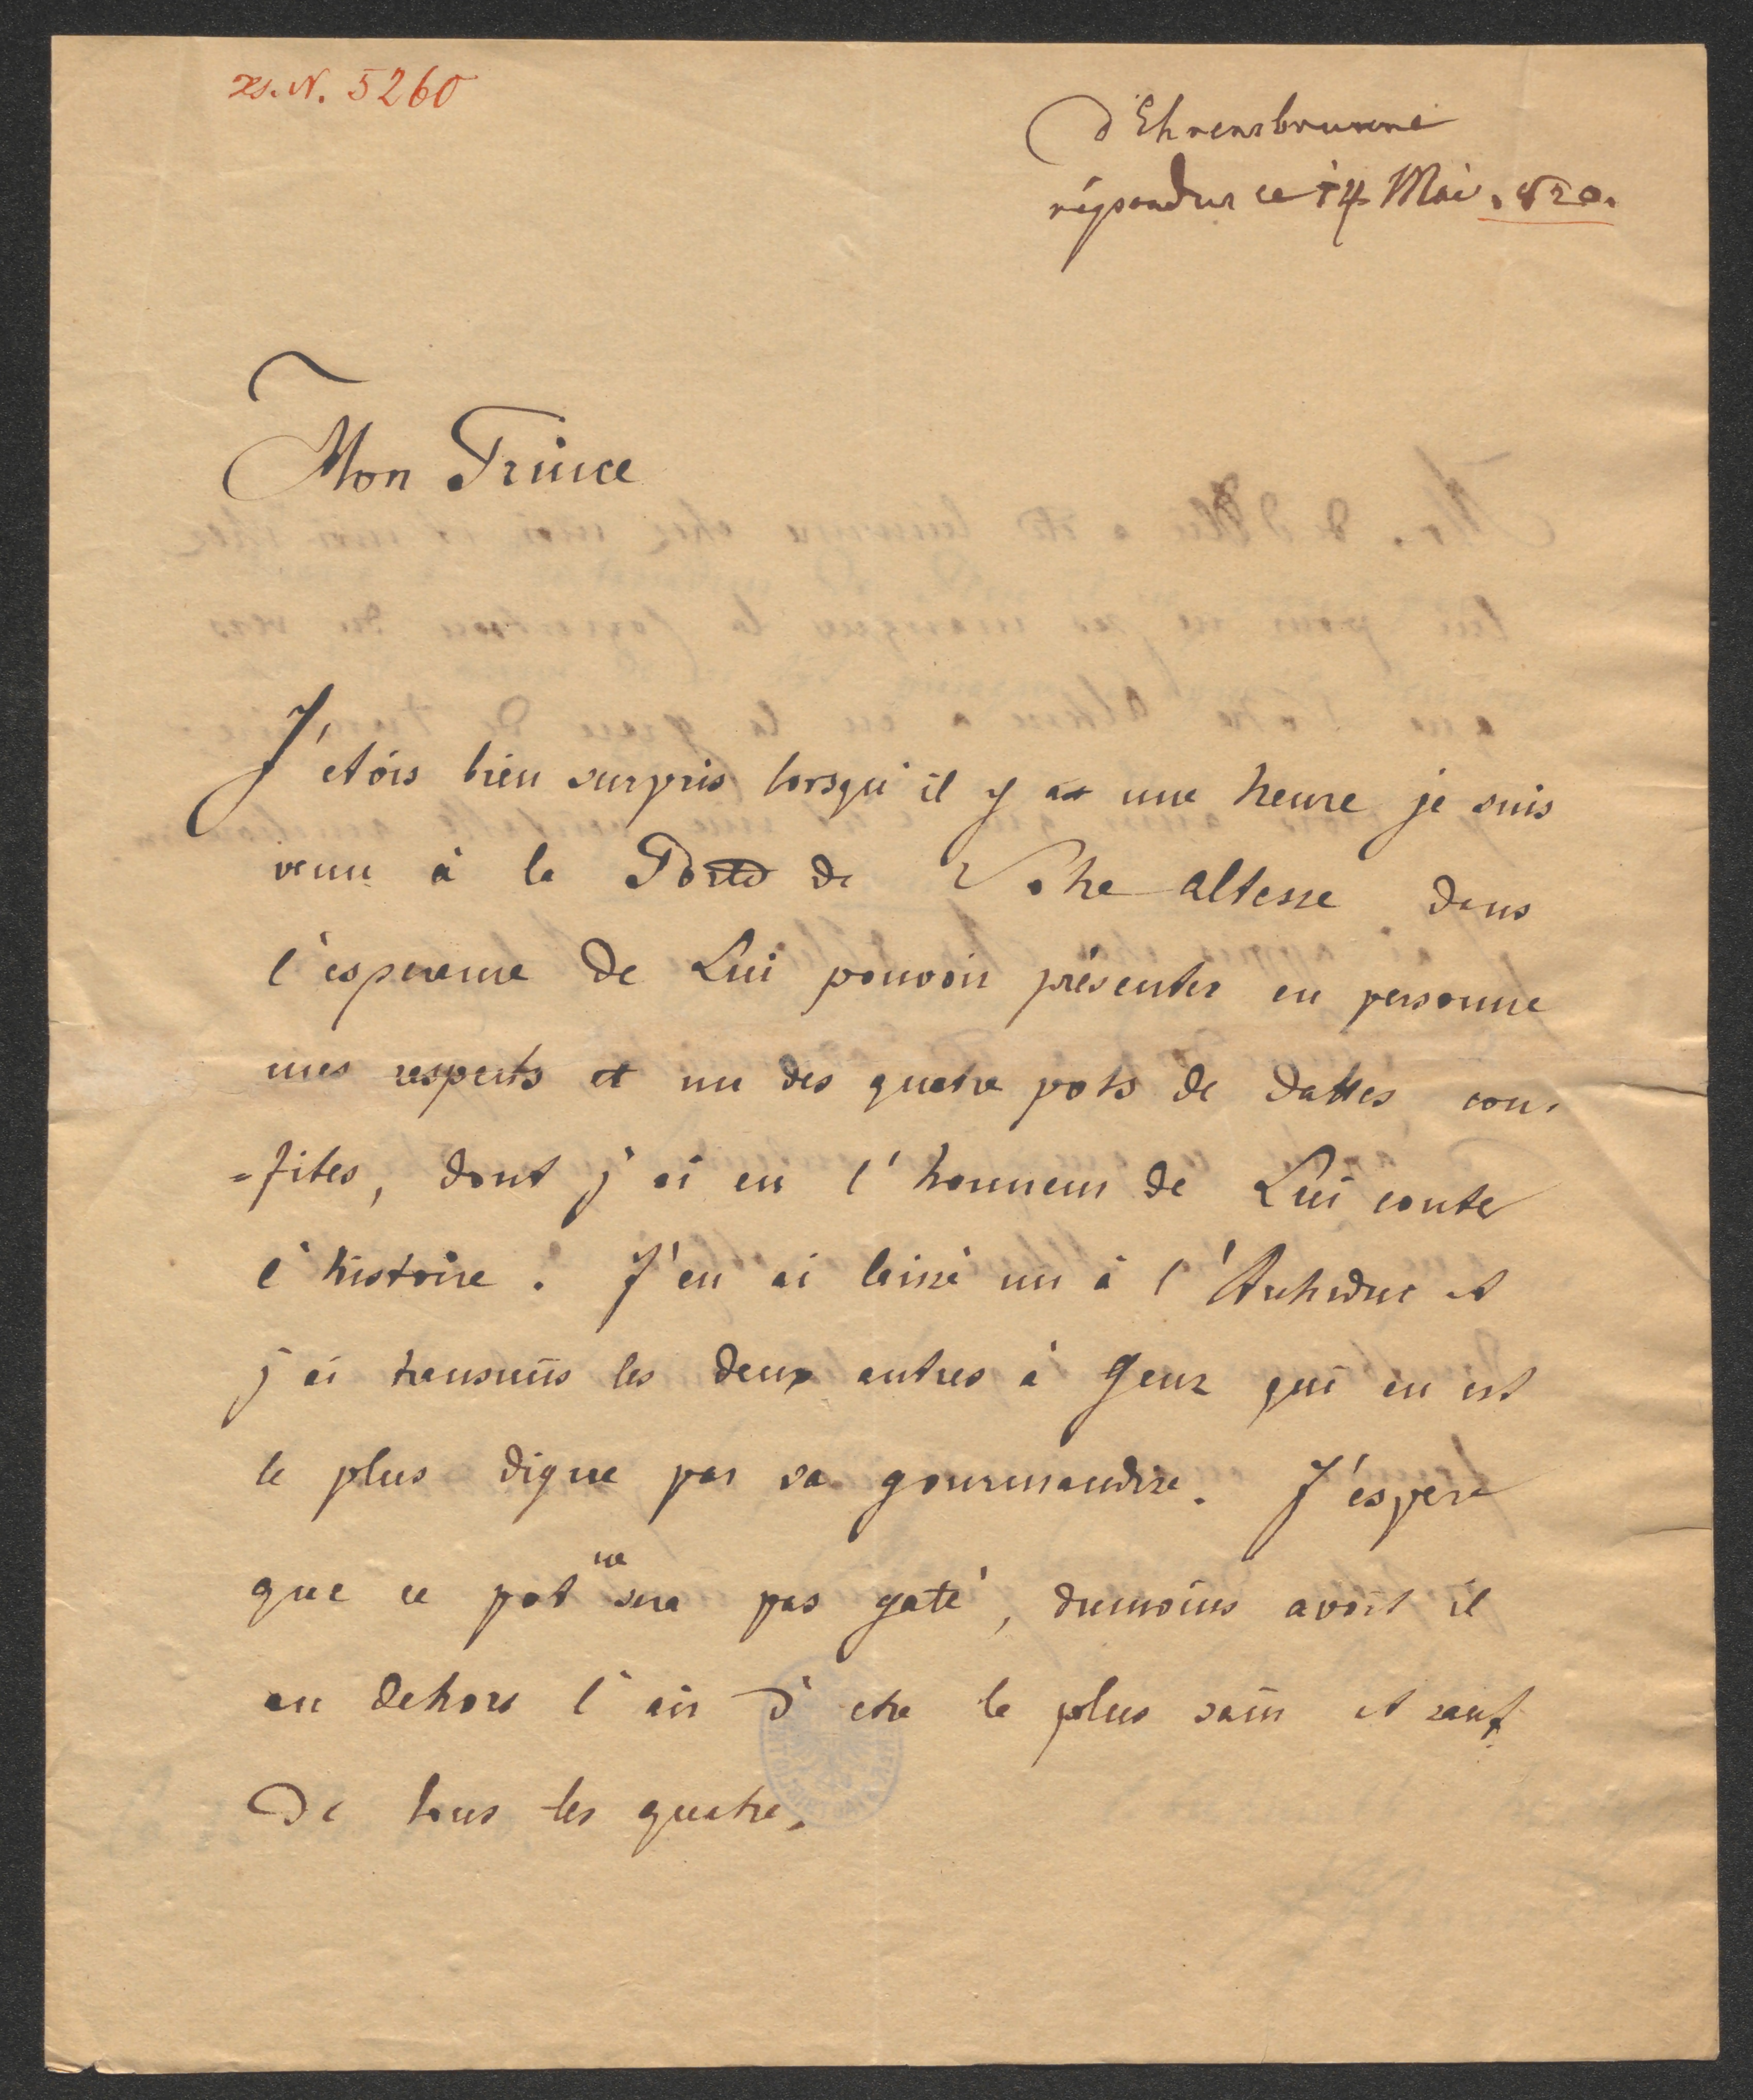 xs. N. 5260
d'Ehrensbrunne
répondu ce 14 Mai. 820.
Mon Prince
J'etois bien surpris lorsqu'il y a une heure je suis
venu à la Porte de Votre altesse dans
l'esperence de Lui pouvoir présenter en personne
mes respects et un des quatre pots de dattes con-
=fites, dont j'ai eu l'honneur de Lui conter
l'histoire. J'en ai laissé un à l'Archiduc et
j'ai transmis les deux autres à Genz qui en est
le plus digne par sa gourmandise. J'éspere
que ce pot ne sera pas gaté, dumoins avoit il
au dehors l'air d'etre le plus sain et sauf
de tous les quatre.